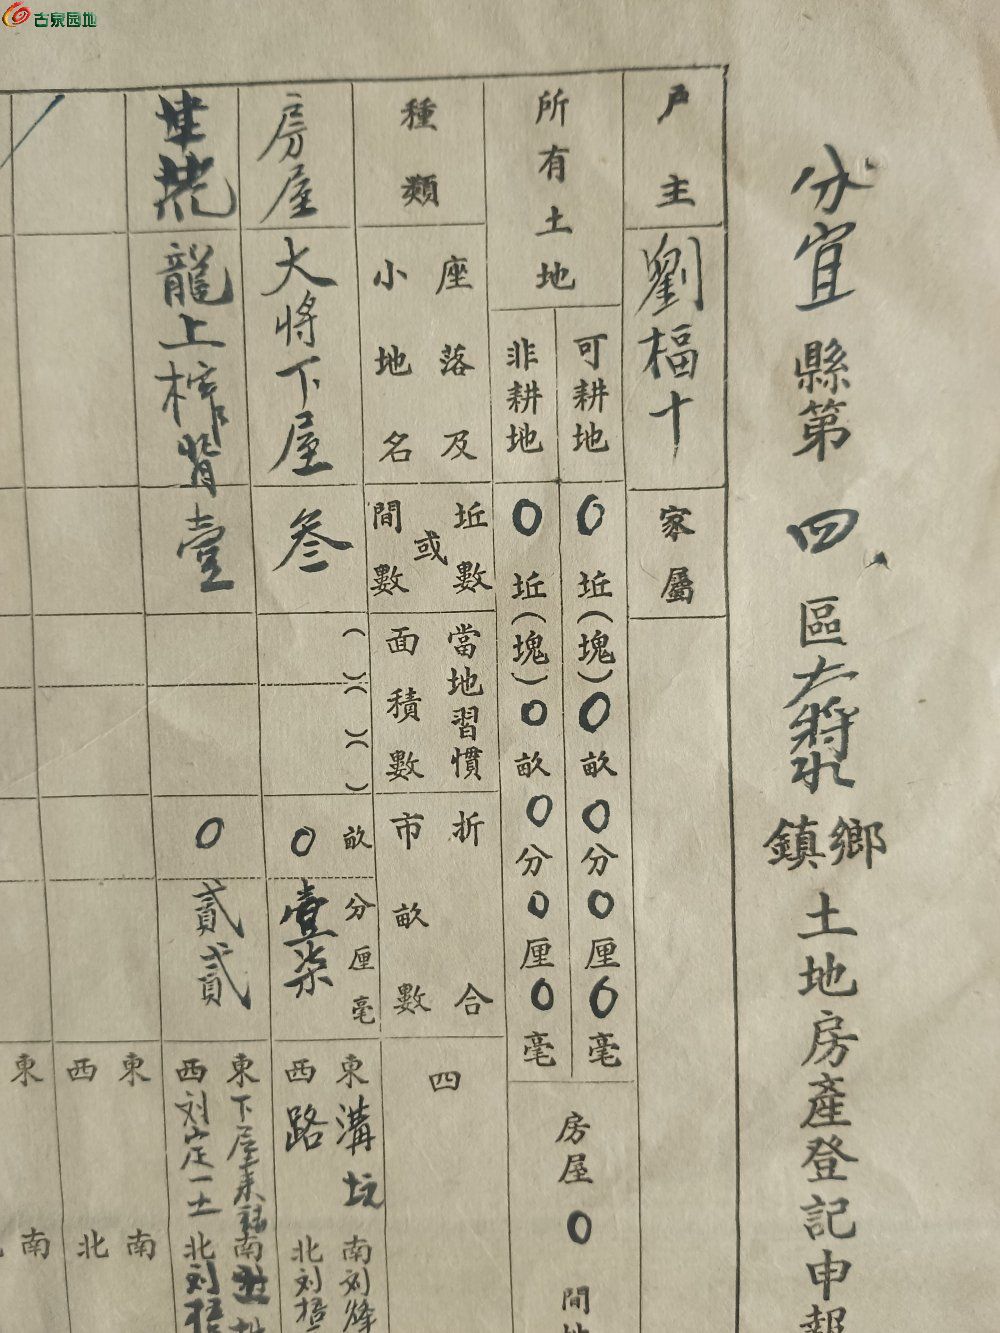 古泉园地
分宜縣第四區大將鄉鎮土地房產登記申報
戶主
劉楅十
家屬
所有土地
可耕地
0坵(塊)0畝0分0厘0毫
非耕地
0坵(塊)0畝0分0厘0毫
房屋0間
種類
座落及
小地名
坵數
或
間數
當地習慣
面積數
折合
市畝數
四
房屋
大將下屋
叁
()()()
0畝
壹柒
分厘毫
東溝坑
西路
南刘
北刘
龍上榨背
壹
0
貳貳
東下屋
西刘定一土
南
北刘
東
西
南
北
東
南